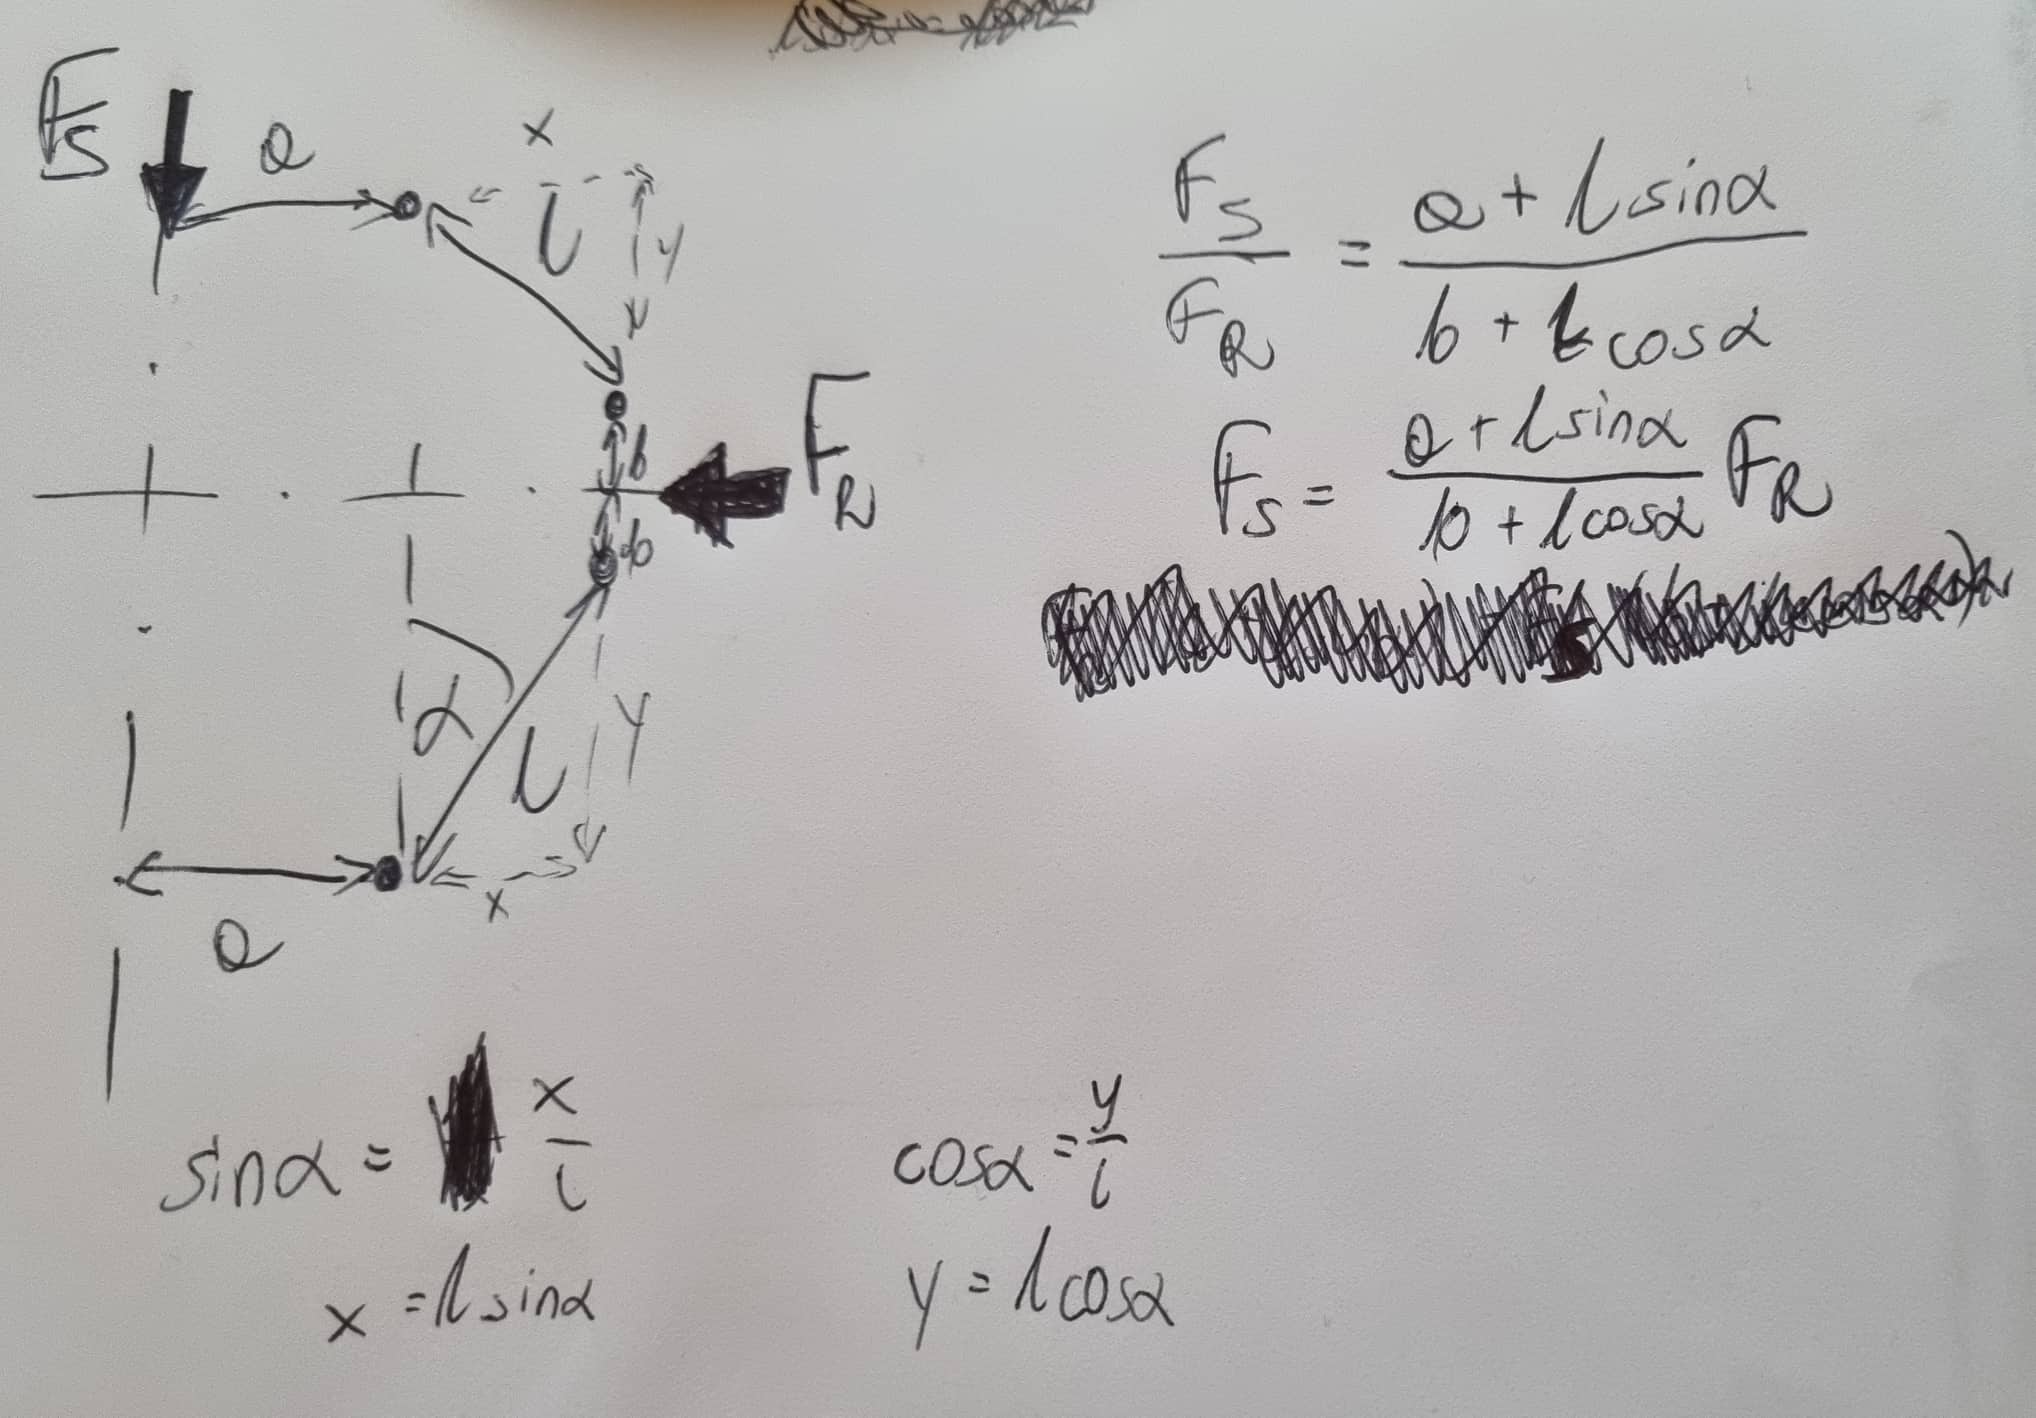 F_S
a
x
l
y
b
F_R
b
α
l
y
a
x
F_S / F_R = (a + l sinα) / (b + l cosα)
F_S = (a + l sinα) / (b + l cosα) F_R
sinα = x / l
x = l sinα
cosα = y / l
y = l cosα